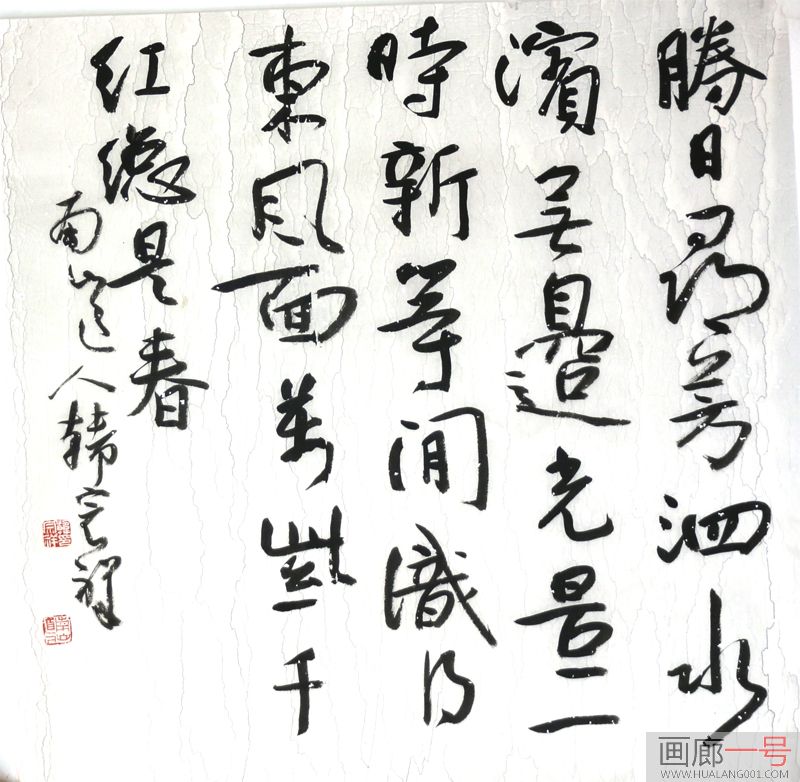 勝日尋芳泗水
濱無邊光景一
時新等閒識得
東風面萬紫千
红總是春
南山道人韩祥
画廊一号
WWW.HUALANG001.COM